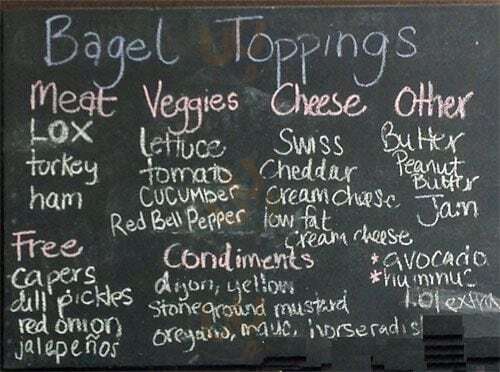 Bagel Toppings
Meat
LOX
turkey
ham
Veggies
Lettuce
tomato
CUCUMber
Red Bell Pepper
Cheese
Swiss
Cheddar
Cream cheese
low fat
cream cheese
Other
Butter
Peanut
Butter
Jam
Free
capers
dill pickles
red onion
jalepeños
Condiments
dijon, yellow
Stoneground mustard
oregano, horseradis
*avocado
*hummus
extra